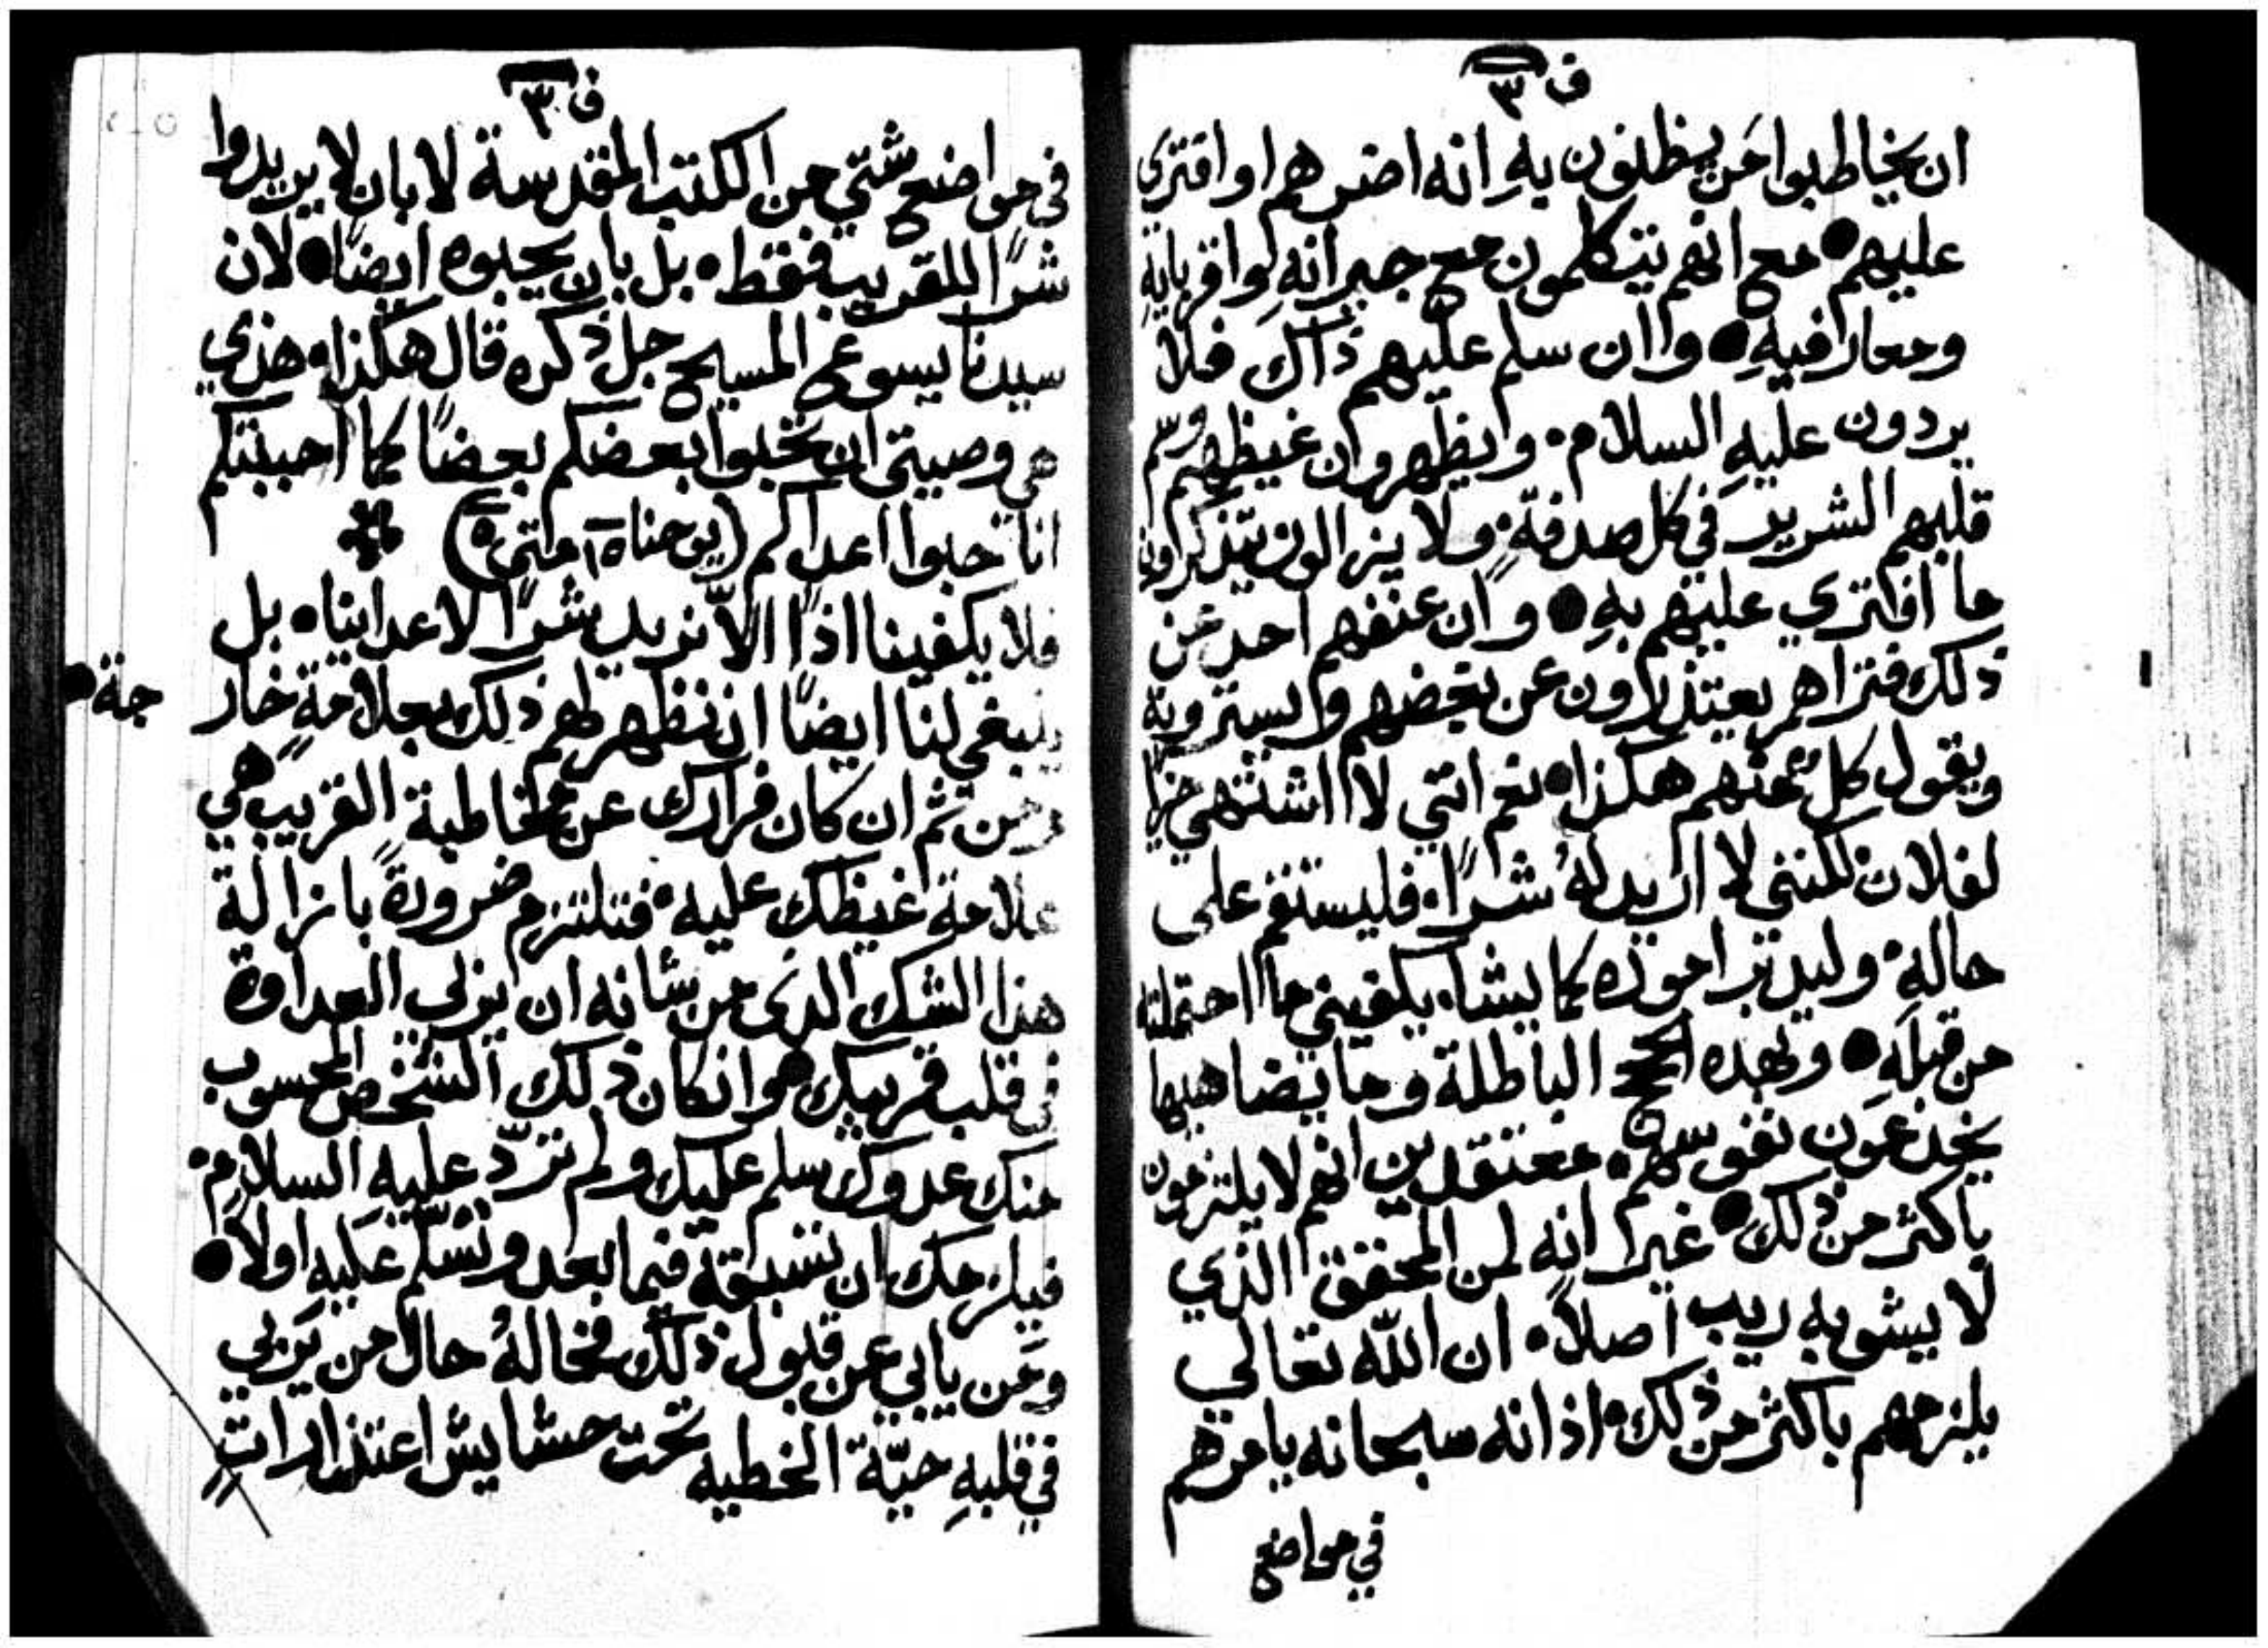 ف ٣
ان يخاطبوا من يظنون به انه اضرهم او افترى
عليهم • مع انهم يتكلمون مع جيرانه واقربايه
ومعارفيه • وان سلم عليهم ذاك فلا
يردون عليه السلام • ويظهرون غيظهم وسم
قلبهم الشرير في كل صدفة • ولا يزالون يتذكرون
ما افتري عليهم به • وان عنفهم احد عن
ذلك فتراهم يعتذرون عن بغضهم ويسترونه
ويقول كل منهم هكذا • نعم انني لا اشتهي خيرا
لفلان لكنني لا اريد له شرًا • فليستقم على
حاله • وليدبر اموره كما يشا • يكفيني ما احتملته
من قبله • وبهذه الحجج الباطلة وما يضاهيها
يخدعون نفوسهم • معتقدين انهم لا يلتزمون
باكثر من ذلك • غير انه لمن المحقق الذي
لا يشوبه ريب اصلاً • ان اللّه تعالي
يلزمهم باكثر من ذلك • اذ انه سبحانه يامرهم
في مواضع
ف ٣
في مواضع شتّي من الكتب المقدسة لا بان لا يريدوا
شرًا للقريب فقط • بل بان يحبوه ايضًا • لان
سيدنا يسوع المسيح جل ذكره قال هكذا • هذي
هي وصيتي ان تحبوا بعضكم بعضًا كما احببتكم
انا حبوا اعداكم (يوحنا ١٥ متى ٥)
فلا يكفينا اذًا الاّ نريد شرًا لاعداينا • بل
ينبغي لنا ايضًا ان نظهر لهم ذلك بعلامةٍ خار
جة •
ومن ثم ان كان فرارك عن مخاطبة القريب هي
علامة غيظك عليه • فتلتزم ضرورةً بازالة
هذا الشك الذى من شانه ان يربي العداوة
في قلب قريبك • وانكان ذلك الشخص المحسوب
منك عدوك سلم عليك ولم تردّ عليه السلام •
فيلزمك ان تسبقه فيما بعد وتسلّم عليه اولاً •
ومن يابي عن قبول ذلك فحاله حال من يربي
في قلبهِ حيّة الخطيه تحت حشايش اعتذاراتٍ